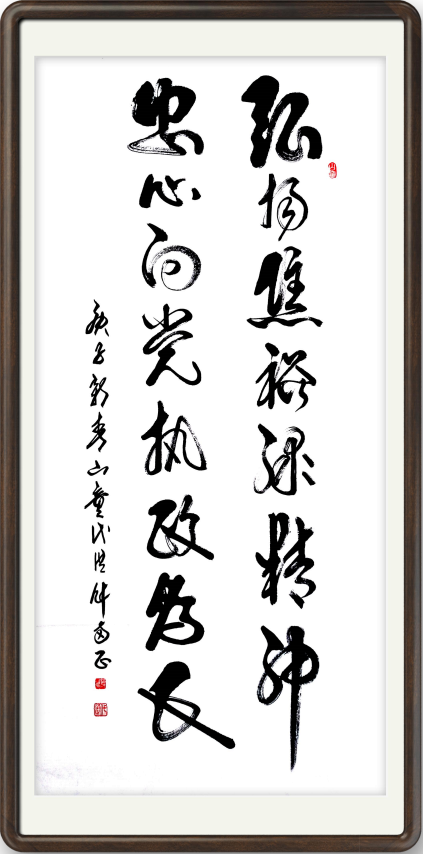 弘扬焦裕禄精神
忠心向党执政为民
庚子新春山童氏